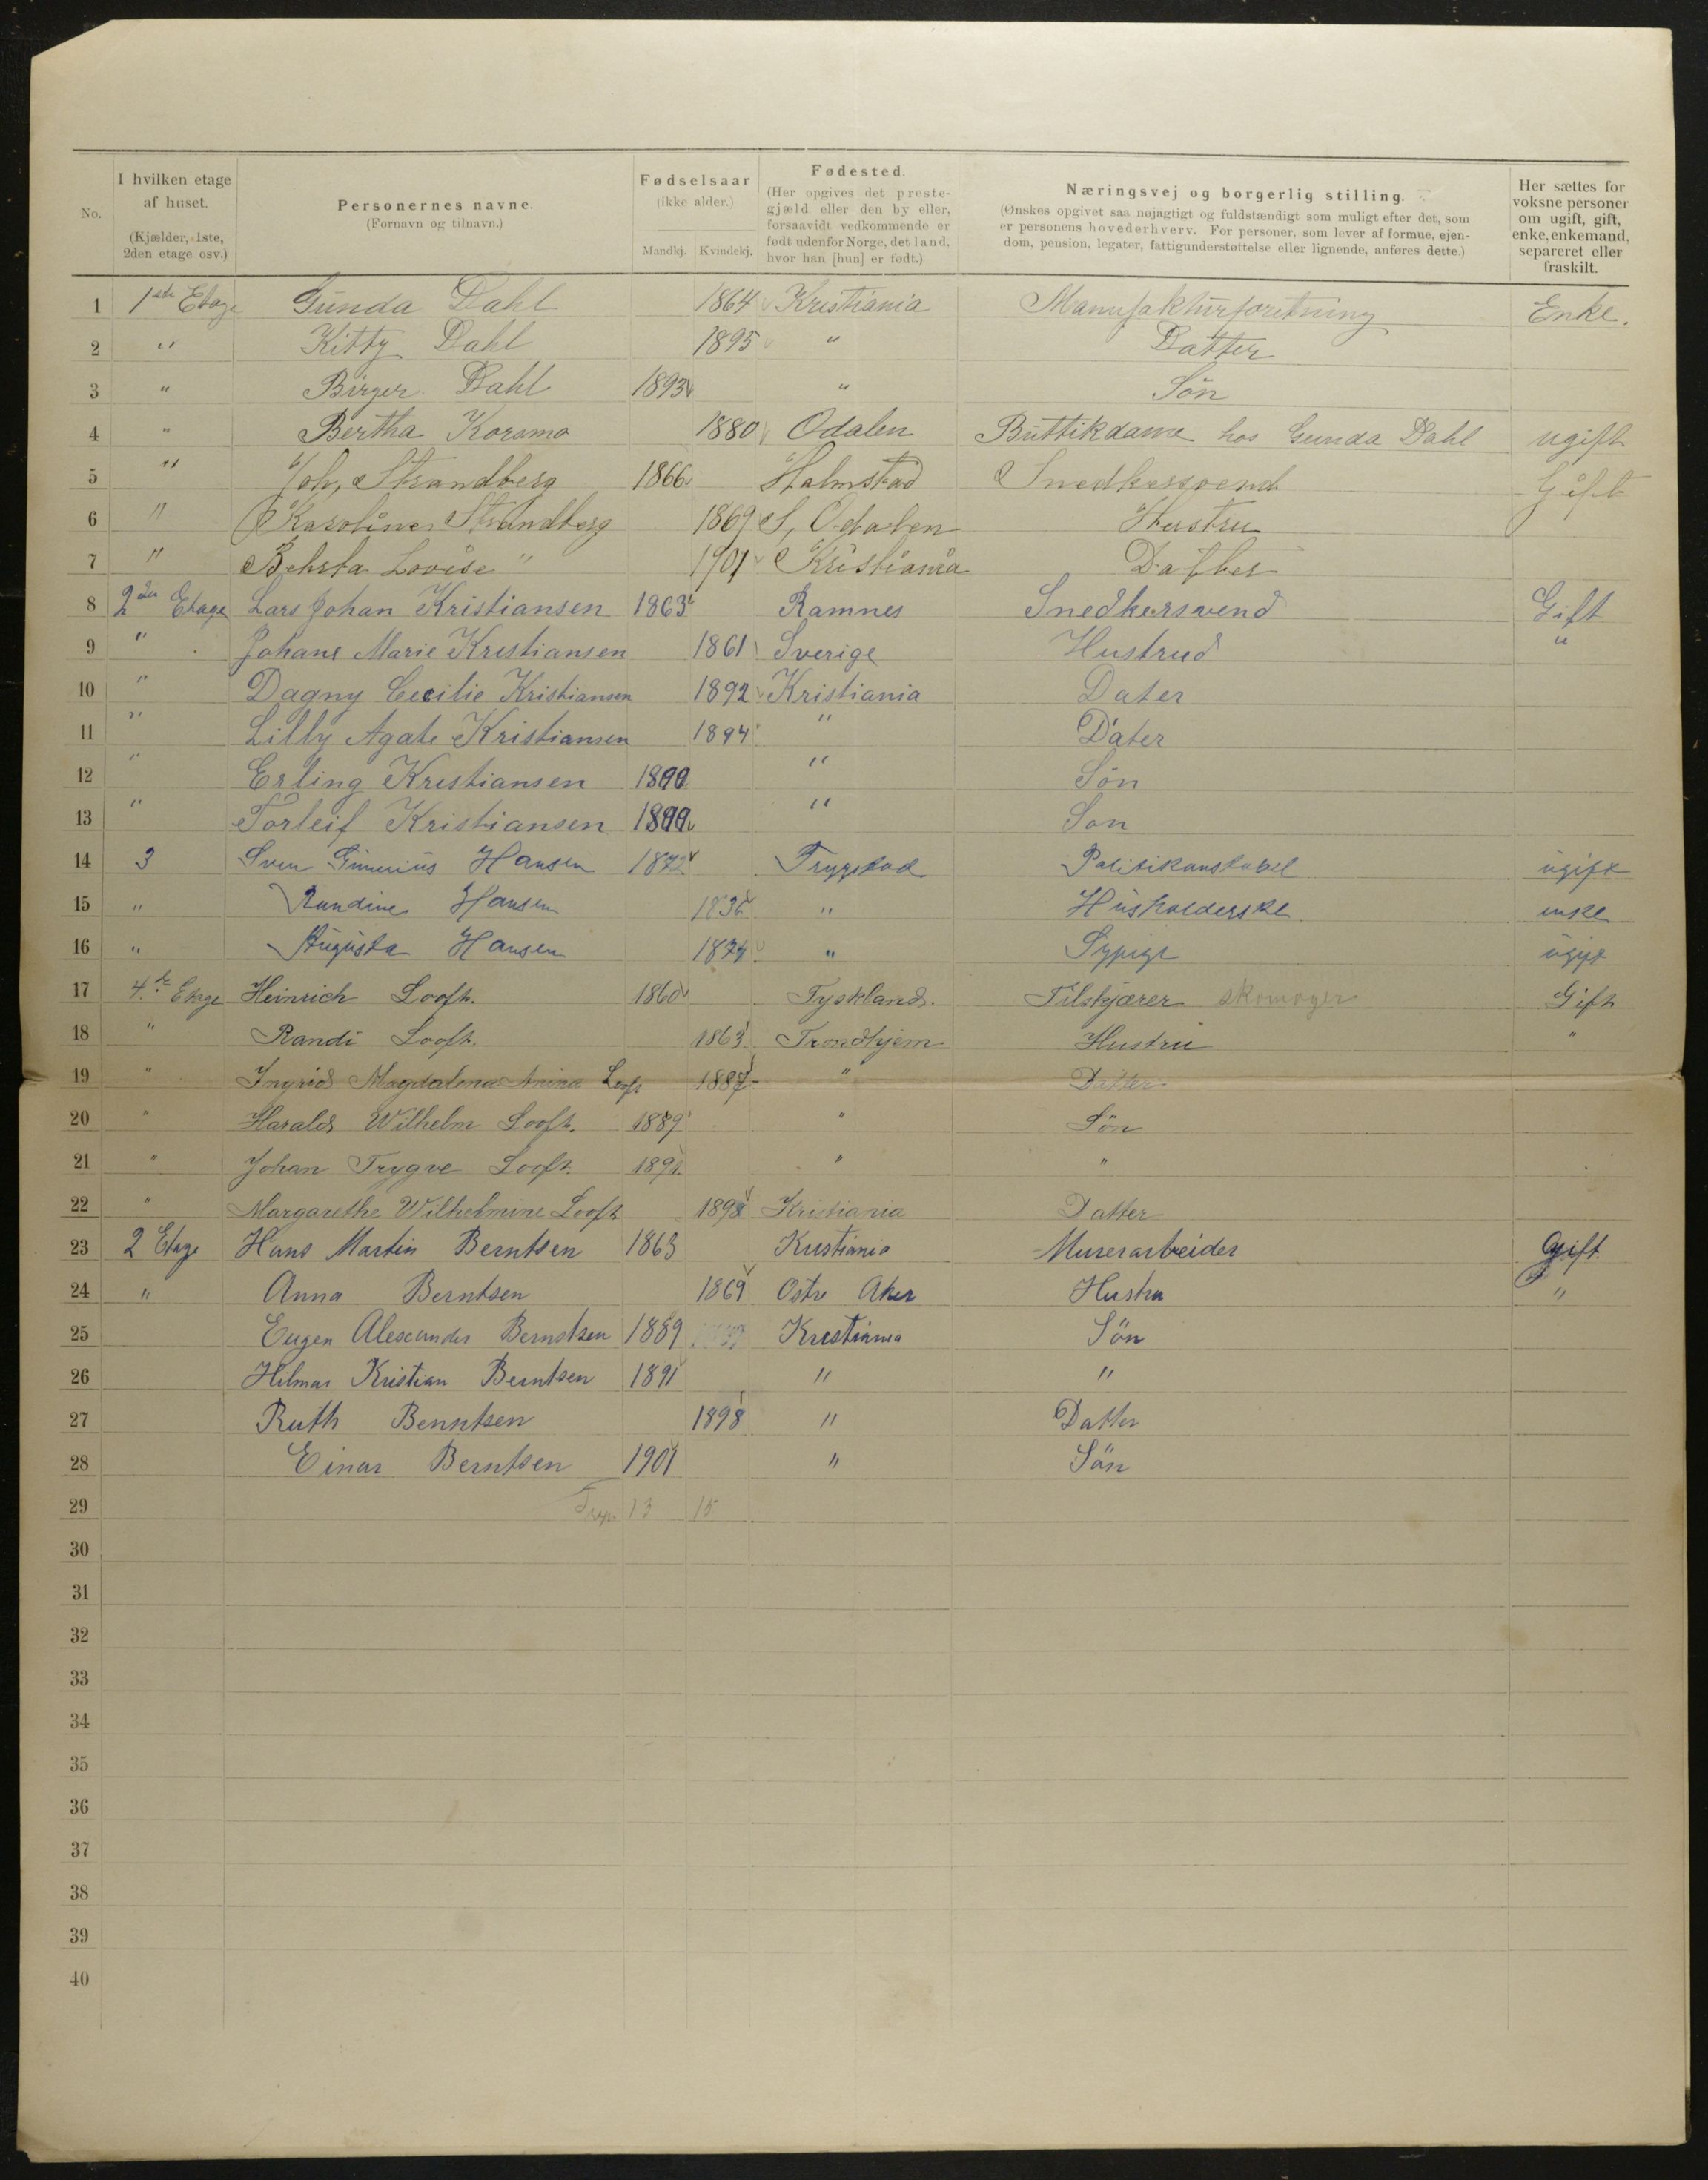 No.
I hvilken etage af huset. (Kjælder, 1ste, 2den etage osv.)
Personernes navne. (Fornavn og tilnavn.)
Fødselsaar (ikke alder.) Mandkj. Kvindekj.
Fødested. (Her opgives det prestegjæld eller den by eller, forsaavidt vedkommende er født udenfor Norge, det land, hvor han [hun] er født.)
Næringsvej og borgerlig stilling. (Ønskes opgivet saa nøjagtigt og fuldstændigt som muligt efter det, som er personens hovederhverv. For personer, som lever af formue, ejendom, pension, legater, fattigunderstøttelse eller lignende, anføres dette.)
Her sættes for voksne personer om ugift, gift, enke, enkemand, separeret eller fraskilt.
1 1ste Etage Gunda Dahl 1864 Kristiania Manufakturforetning Enke.
2 " Kitty Dahl 1895 " Datter
3 " Birger Dahl 1893 " Søn
4 " Bertha Korsmo 1880 Odalen Buttikdame hos Gunda Dahl ugift
5 " Joh, Strandberg 1866 Halmstad Snedkersvend Gift
6 " Karoline Strandberg 1869 S, Odalen Hustru
7 " Lovise " 1901 Kristiania Datter
8 2den Etage Lars Johan Kristiansen 1863 Ramnes Snedkersvend Gift
9 " Johane Marie Kristiansen 1861 Sverige Hustrud "
10 " Dagny Cecilie Kristiansen 1892 Kristiania Dater
11 " Lilly Agate Kristiansen 1894 " Dater
12 " Erling Kristiansen " Søn
13 " Torleif Kristiansen " Søn
14 3 Sven Hansen 1872 Trygstad Politikonstabel ugift
15 " Randine Hansen 1836 " Husholderske enke
16 " Augusta Hansen 1874 " Sypige ugift
17 4de Etage Heinrich Looft. 1860 Tyskland. Tilskjærer skomager Gift
18 " Randi Looft. 1863 Trondhjem Hustru "
19 " Ingrid Magdalena Anina Looft 1887 " Datter
20 " Harald Wilhelm Looft. 1889 " Søn
21 " Johan Trygve Looft. 1891. " "
22 " Margarethe Wilhelmine Looft 1898 Kristiania Datter
23 2 Etage Hans Martin Berntsen 1863 Kristiania Murerarbeider Gift.
24 " Anna Berntsen 1869 Østre Aker Hustru "
25 Eugen Alexander Berntsen 1889 Kristiania Søn
26 Hilmar Kristian Berntsen 1891 " "
27 Ruth Berntsen 1898 " Datter
28 Einar Berntsen 1901 " Søn
29 13 15
30
31
32
33
34
35
36
37
38
39
40